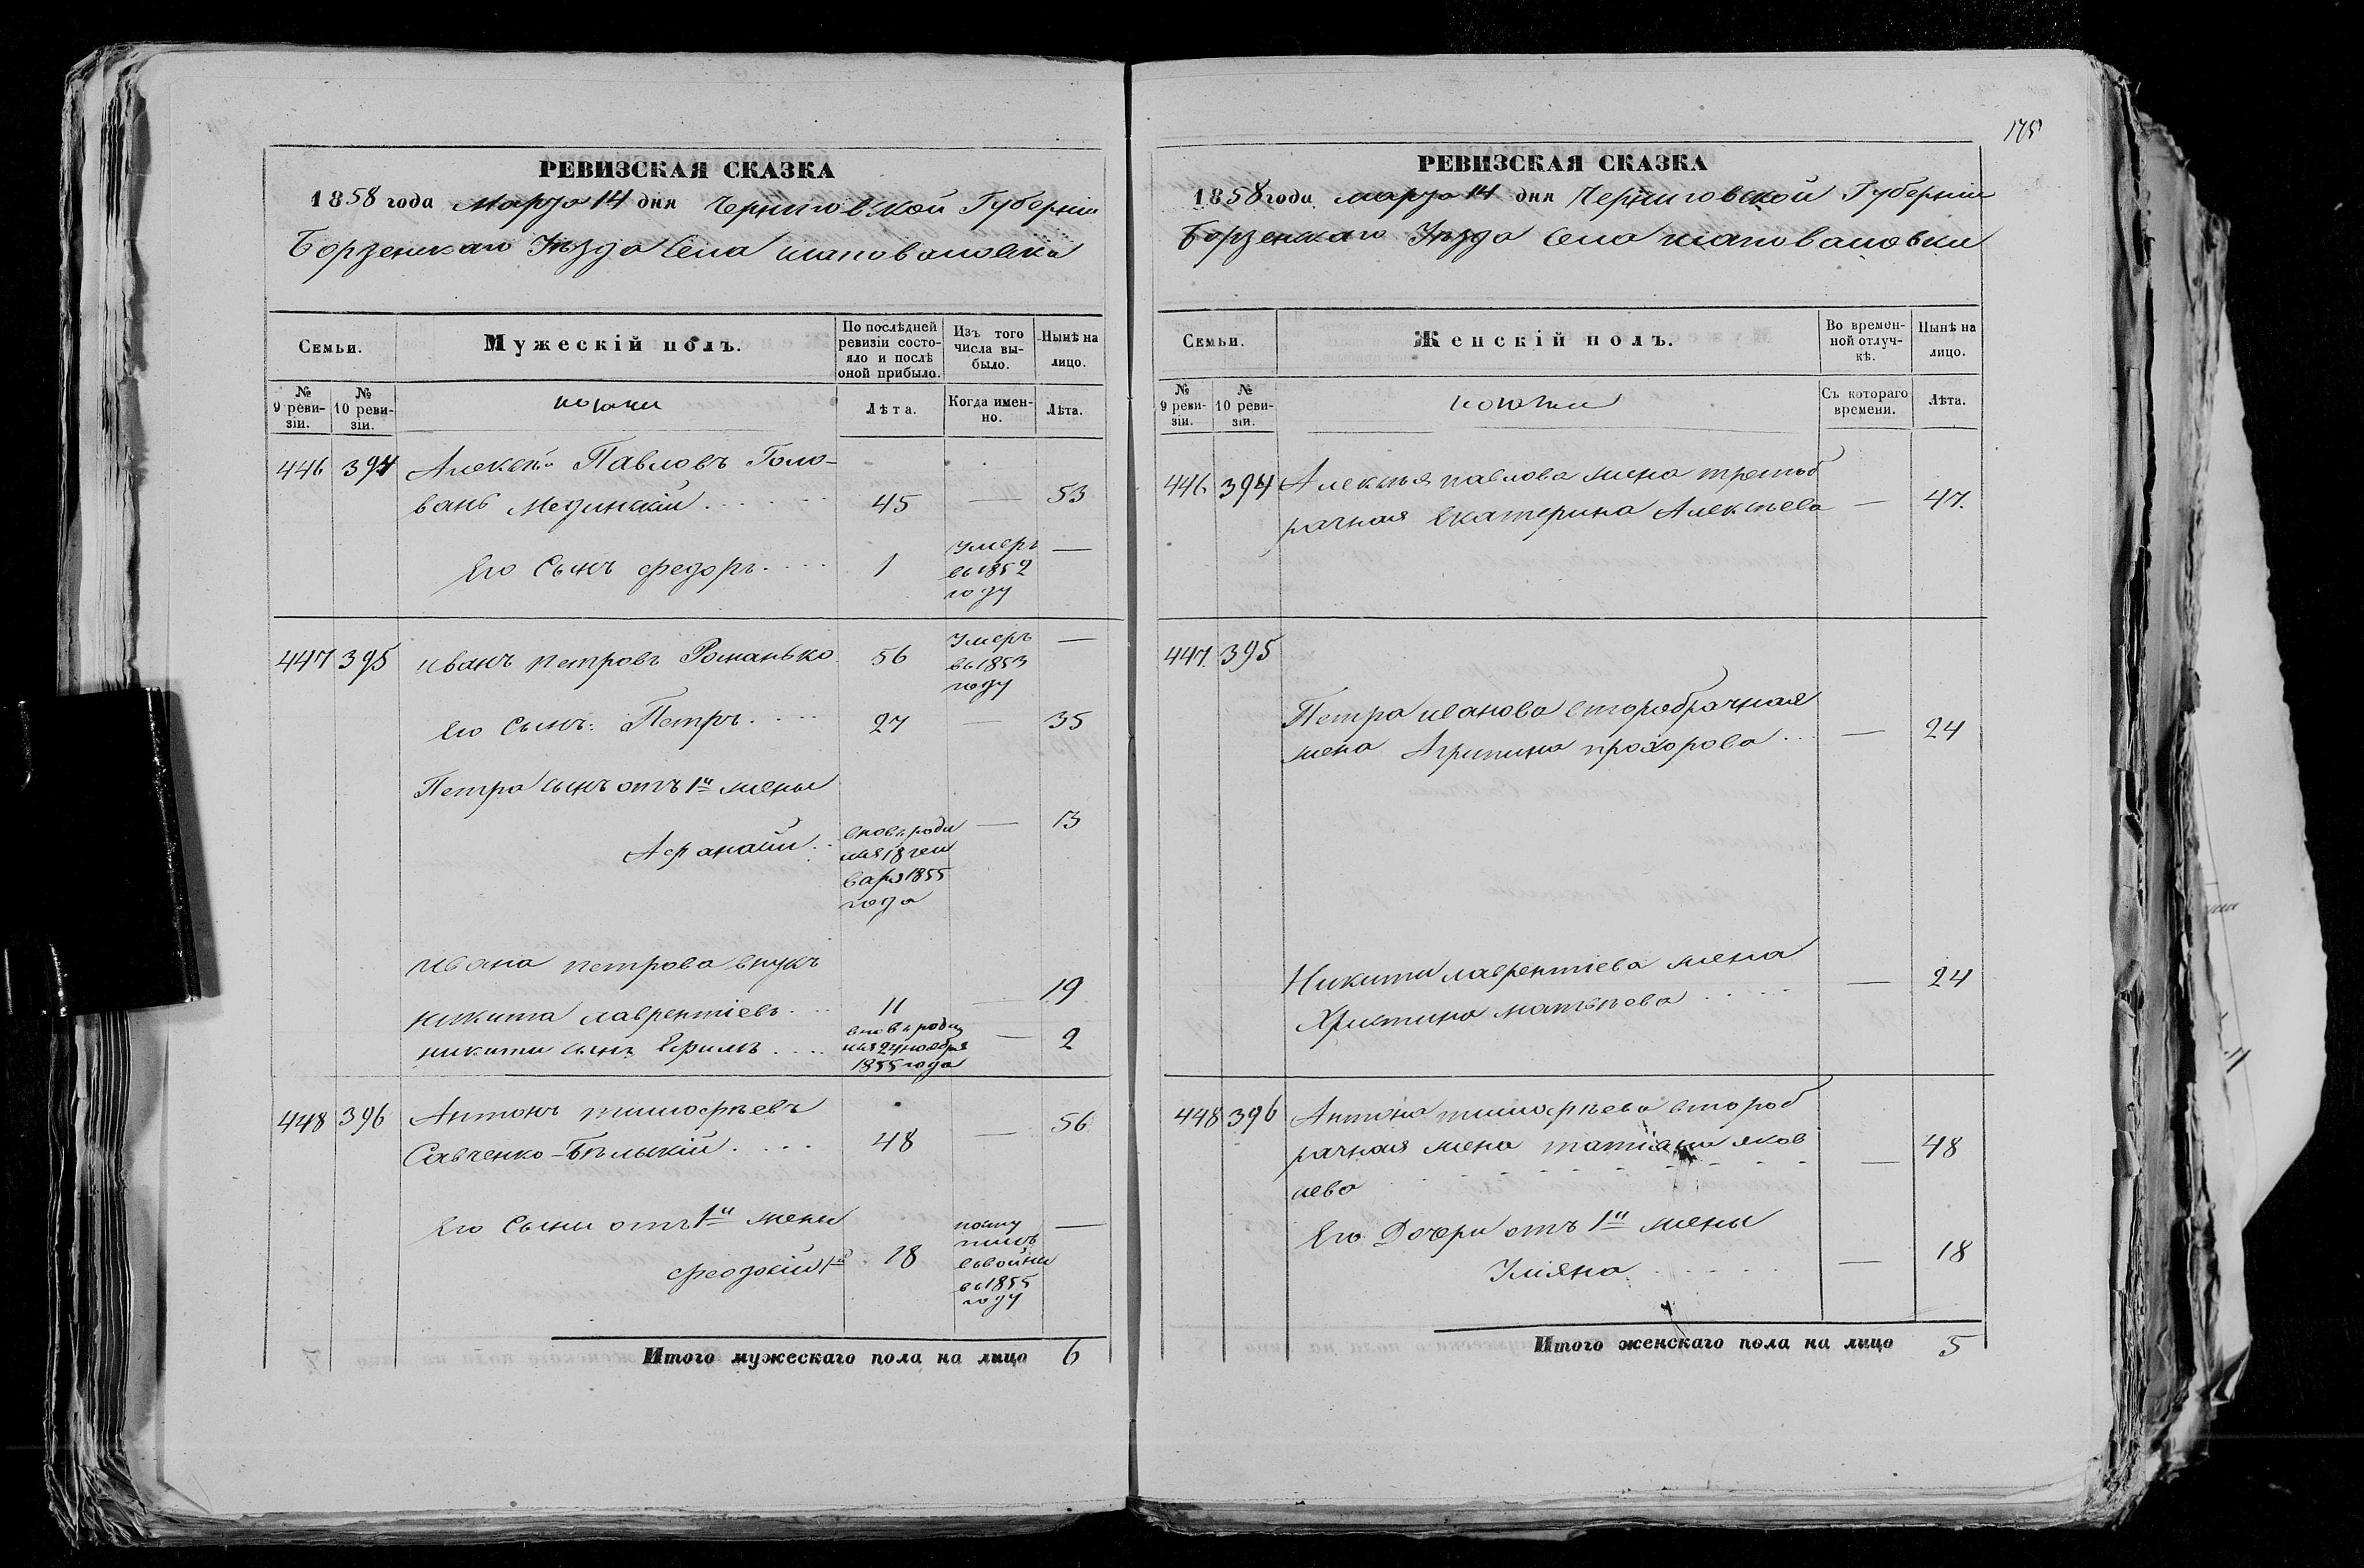 РЕВИЗСКАЯ СКАЗКА
1858 года марта 14 дня Черниговской Губернiи
Борзенскаго Уѣзда Села Шаповаловки
Семьи.
Мужескiй полъ.
По послѣдней ревизiи состо-
яло и послѣ
оной прибыло.
Изъ того
числа вы-
было.
Нынѣ на
лицо.
№
9 реви-
зiи.
№
10 реви-
зiи.
козаки
Лѣта.
Когда имен-
но.
Лѣта.
446 394 Алексѣй Павловъ Голо-
вань Мединскiй 45 — 53
Его Сынъ Федоръ 1 умеръ —
въ 1852
году
447 395 Иванъ Петровъ Романько 56 умеръ —
въ 1853
году
Его Сынъ: Петръ 27 — 35
Петра сынъ отъ 1й жены
Афанасiй вновь роди — 13
лся 18 ген
варя 1855
года
Ивана Петрова внукъ
Никита Лаврентiевъ 11 — 19
Никити сынъ Ефимъ вновь роди — 2
лся 24 ноября
1855 года
448 396 Антонъ Тимофѣевъ
Савченко-Бѣлыкiй 48 — 56
Его Сыни отъ 1й жены
Феодосiй 1й 18 посту —
пилъ
въ войски
въ 1855
году
Итого мужескаго пола на лицо 6
175
РЕВИЗСКАЯ СКАЗКА
1858 года марта 14 дня Черниговской Губернiи
Борзенскаго Уѣзда Села Шаповаловки
Семьи.
Женскiй полъ.
Во времен-
ной отлуч-
кѣ.
Нынѣ на
лицо.
№
9 реви-
зiи.
№
10 реви-
зiи.
козачки
Съ котораго
времени.
Лѣта.
446 394 Алексѣя Павлова жена третьоб
рачная Екатерина Алексѣева — 47.
447. 395
Петра Иванова второбрачная
жена Агрипина Прохорова — 24
Никити Лаврентiева жена
Христина Матвѣева — 24
448 396 Антона Тимофѣева второб
рачная жена Татiана Яков
лева — 48
Его Дочери отъ 1й жены
Улiяна — 18
Итого женскаго пола на лицо 5